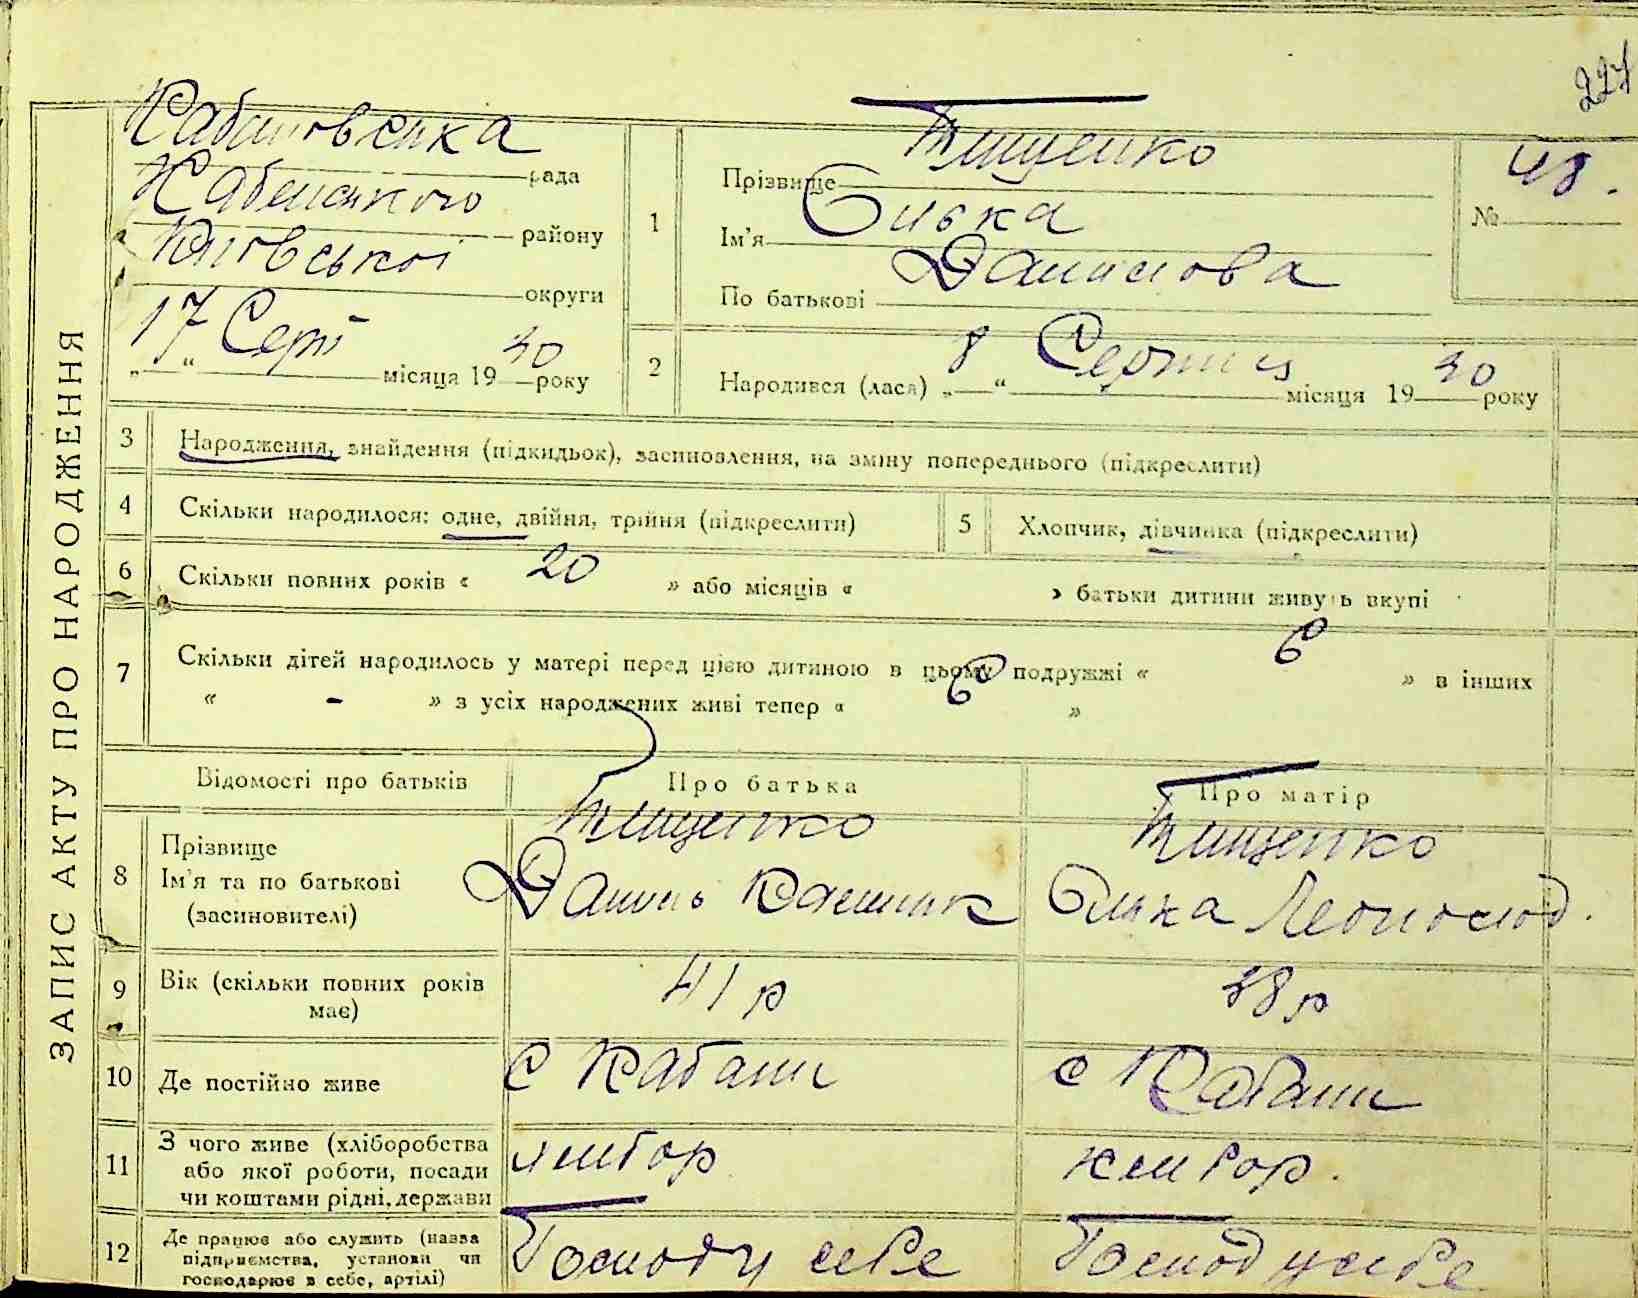 227
ЗАПИС АКТУ ПРО НАРОДЖЕННЯ
Кабановська рада
району
Київської округи
17 Серп місяця 1930 року
1
Прізвище Тищенко
Ім'я Олька
По батькові Данилова
№ 48.
2
Народився (лася) „8“ Серпня місяця 1930 року
3 Народження, знайдення (підкидьок), засиновлення, на зміну попереднього (підкреслити)
4 Скільки народилося: одне, двійня, трійня (підкреслити)
5 Хлопчик, дівчинка (підкреслити)
6 Скільки повних років « 20 » або місяців « » батьки дитини живуть вкупі
7 Скільки дітей народилось у матері перед цією дитиною в цьому подружжі « 6 » в інших
« - » з усіх народжених живі тепер « 6 »
Відомості про батьків
Про батька
Про матір
8
Прізвище
Ім'я та по батькові
(засиновителі)
Тищенко
Данило
Тищенко
Олька
9
Вік (скільки повних років
має)
41 р
38 р
10 Де постійно живе
с Кабани
с Кабани
11
З чого живе (хліборобства
або якої роботи, посади
чи коштами рідні, держави
хлібор
хлібор.
12
Де працює або служить (назва
підприємства, установи чи
господарює в себе, артілі)
Господ у себе
Господ у себе